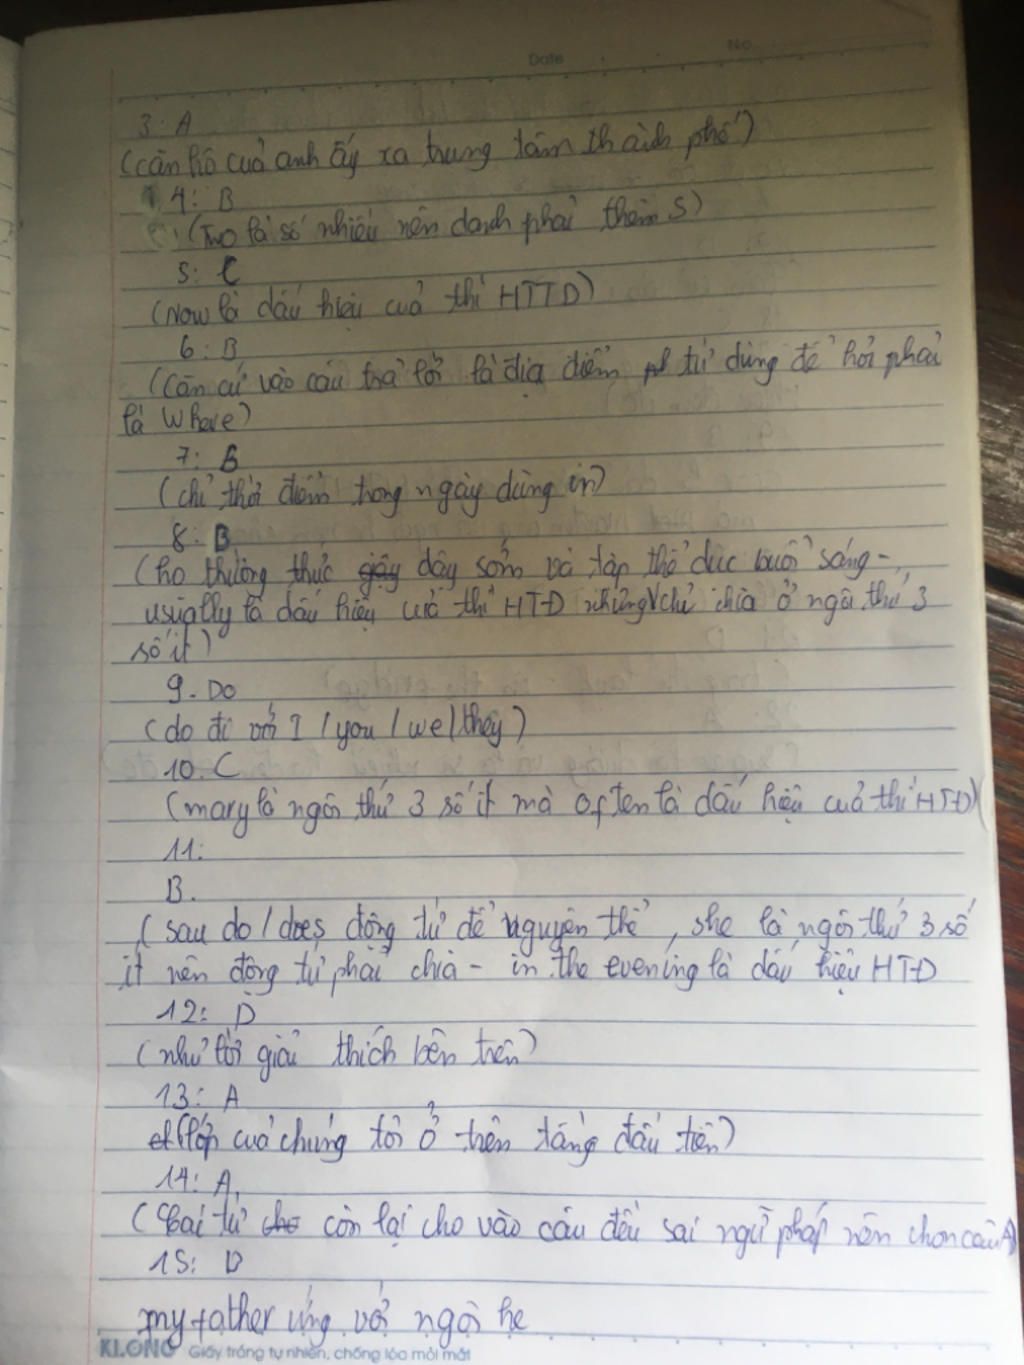 Date No
3: A
(căn hộ cuả anh ấy xa trung tâm thành phố)
4: B
(Two là số nhiều nên danh phải thêm S)
5: C
(Now là dấu hiệu cuả thì HTTD)
6: B
(Căn cứ vào câu trả lời là địa điểm từ dùng để hỏi phải
là Where)
7: B
(chỉ thời điểm trong ngày dùng in)
8: B
(họ thường thức dậy sớm và tập thể dục buổi sáng -
usually là dấu hiệu cuả thì HTĐ chia ở ngôi thứ 3
số ít)
9. Do
(do đi với I / you / we / they)
10. C
(mary là ngôi thứ 3 số ít mà often là dấu hiệu cuả thì HTĐ)
11:
B.
(sau do / does động từ để nguyên thể, she là ngôi thứ 3 số
ít nên động từ phải chia - in the evening là dấu hiệu HTĐ
12: D
(như lời giải thích bên trên)
13: A
(lớp cuả chúng tôi ở trên tầng đầu tiên)
14: A.
từ còn lại cho vào câu đều sai ngữ pháp nên chọn câu A)
15: D
my father ứng với ngôi he
KLONG Giấy trắng tự nhiên, chống lóa mỏi mắt